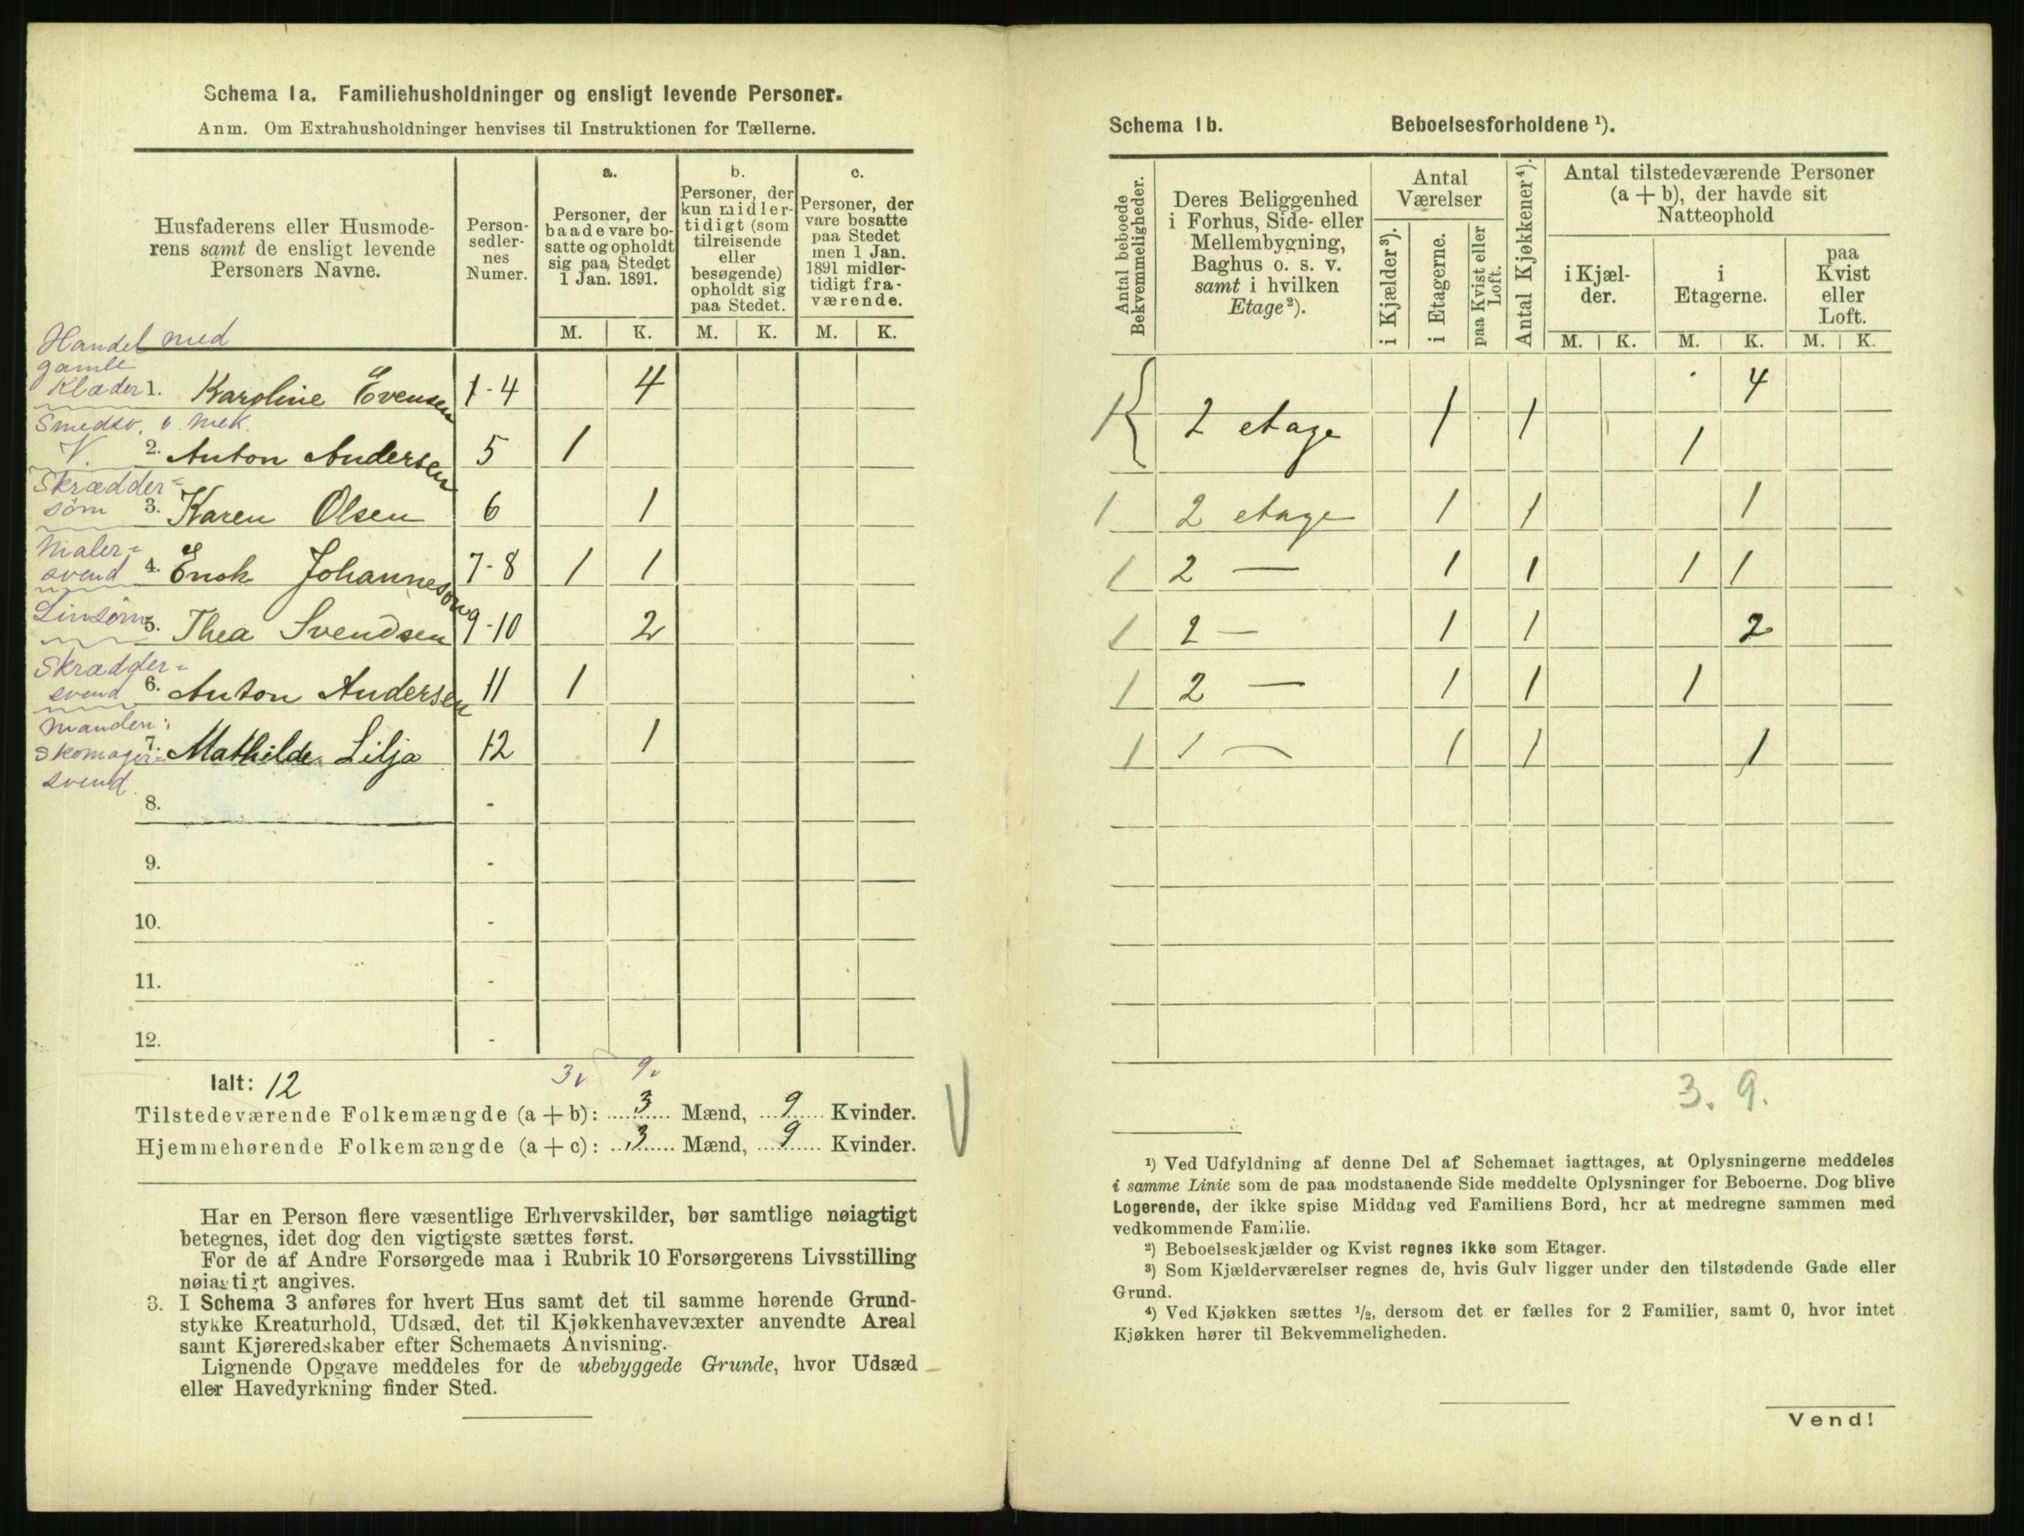 Schema 1a. Familiehusholdninger og ensligt levende Personer.
Anm. Om Extrahusholdninger henvises til Instruktionen for Tællerne.
Husfaderens eller Husmode-
rens samt de ensligt levende
Personers Navne.
Person-
sedler-
nes
Numer.
a.
Personer, der
baade vare bo-
satte og opholdt
sig paa Stedet
1 Jan. 1891.
b.
Personer, der
kun midler-
tidigt (som
tilreisende
eller
besøgende)
opholdt sig
paa Stedet.
c.
Personer, der
vare bosatte
paa Stedet
men 1 Jan.
1891 midler-
tidigt fra-
værende.
M. K. M. K. M. K.
Handel med
gamle
Klæder 1. Karoline Evensen 1-4 4
Smedsv. o mek.
V. 2. Anton Andersen 5 1
Skrædder=
søm 3. Karen Olsen 6 1
Maler=
svend 4. Enok Johannesen 7-8 1 1
Linsøm 5. Thea Svendsen 9-10 2
Skrædder=
svend 6. Anton Andersen 11 1
Manden:
Skomager= 7. Mathilde Lilja 12 1
svend
8. -
9. -
10. -
11. -
12. -
3 9
Ialt: 12
Tilstedeværende Folkemængde (a + b): 3 Mænd, 9 Kvinder.
Hjemmehørende Folkemængde (a + c): 3 Mænd, 9 Kvinder.
Har en Person flere væsentlige Erhvervskilder, bør samtlige nøiagtigt
betegnes, idet dog den vigtigste sættes først.
For de af Andre Forsørgede maa i Rubrik 10 Forsørgerens Livsstilling
nøiagtigt angives.
3. I Schema 3 anføres for hvert Hus samt det til samme hørende Grund-
stykke Kreaturhold, Udsæd, det til Kjøkkenhavevæxter anvendte Areal
samt Kjøreredskaber efter Schemaets Anvisning.
Lignende Opgave meddeles for de ubebyggede Grunde, hvor Udsæd
eller Havedyrkning finder Sted.
Schema 1b. Beboelsesforholdene ¹).
Antal beboede
Bekvemmeligheder.
Deres Beliggenhed
i Forhus, Side- eller
Mellembygning,
Baghus o. s. v.
samt i hvilken
Etage²).
Antal
Værelser
i Kjælder³).
i Etagerne.
paa Kvist eller
Loft.
Antal Kjøkkener⁴).
Antal tilstedeværende Personer
(a + b), der havde sit
Natteophold
i Kjæl-
der.
i
Etagerne.
paa
Kvist
eller
Loft.
M. K. M. K. M. K.
4
1 { 2 etage 1 1
1
1 2 etage 1 1 1
1 2 — 1 1 1 1
1 2 — 1 1 2
1 2 — 1 1 1
1 1 — 1 1 1
3. 9.
¹) Ved Udfyldning af denne Del af Schemaet iagttages, at Oplysningerne meddeles
i samme Linie som de paa modstaaende Side meddelte Oplysninger for Beboerne. Dog blive
Logerende, der ikke spise Middag ved Familiens Bord, her at medregne sammen med
vedkommende Familie.
²) Beboelseskjælder og Kvist regnes ikke som Etager.
³) Som Kjælderværelser regnes de, hvis Gulv ligger under den tilstødende Gade eller
Grund.
⁴) Ved Kjøkken sættes ½, dersom det er fælles for 2 Familier, samt 0, hvor intet
Kjøkken hører til Bekvemmeligheden.
Vend!